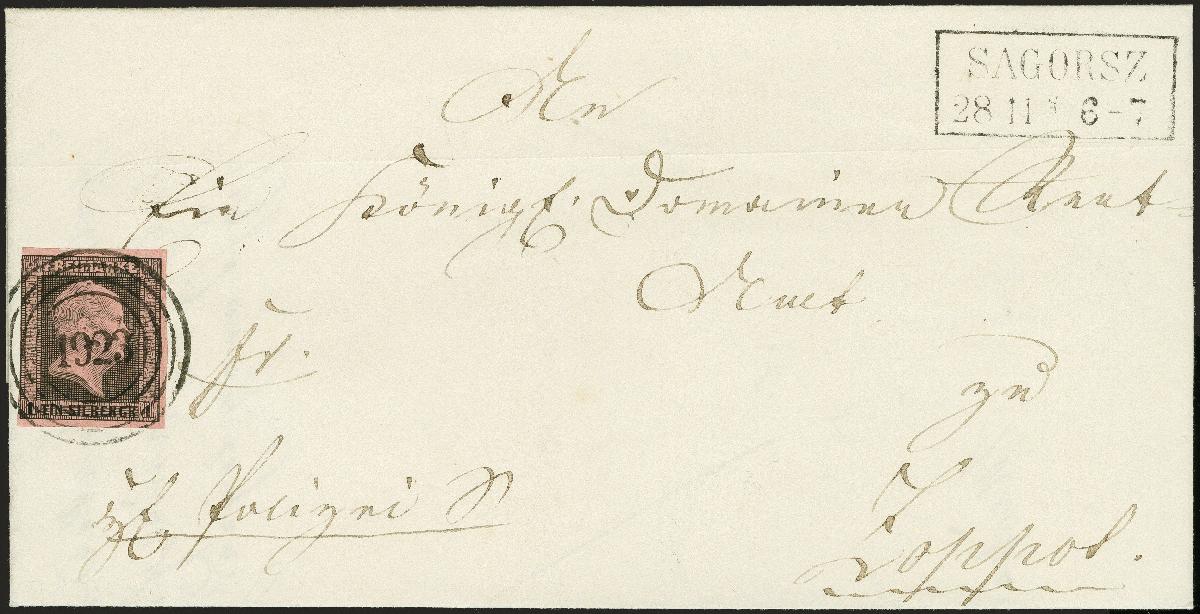 SAGORSZ
28 11 * 6-7
An
Ein Königl. Domainen Rent-
Amt
FREIMARKE
1923
1 EIN SILBERGR. 1
fr.
zu
Zoppot.
Polizei S